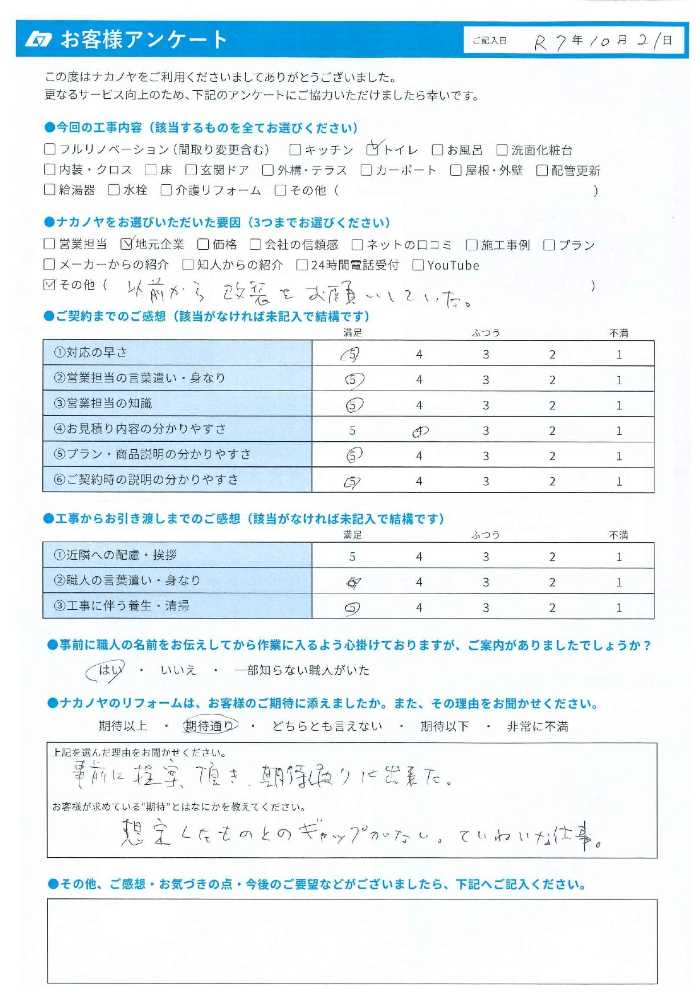 お客様アンケート ご記入日 R7年10月21日
この度はナカノヤをご利用くださいましてありがとうございました。
更なるサービス向上のため、下記のアンケートにご協力いただけましたら幸いです。
●今回の工事内容（該当するものを全てお選びください）
□フルリノベーション（間取り変更含む） □キッチン ☑トイレ □お風呂 □洗面化粧台
□内装・クロス □床 □玄関ドア □外構・テラス □カーポート □屋根・外壁 □配管更新
□給湯器 □水栓 □介護リフォーム □その他（ ）
●ナカノヤをお選びいただいた要因（3つまでお選びください）
□営業担当 ☑地元企業 □価格 □会社の信頼感 □ネットの口コミ □施工事例 □プラン
□メーカーからの紹介 □知人からの紹介 □24時間電話受付 □YouTube
☑その他（ 以前から改装をお願いしていた。 ）
●ご契約までのご感想（該当がなければ未記入で結構です）
満足 ふつう 不満
①対応の早さ 5 4 3 2 1
②営業担当の言葉遣い・身なり 5 4 3 2 1
③営業担当の知識 5 4 3 2 1
④お見積り内容の分かりやすさ 5 4 3 2 1
⑤プラン・商品説明の分かりやすさ 5 4 3 2 1
⑥ご契約時の説明の分かりやすさ 5 4 3 2 1
●工事からお引き渡しまでのご感想（該当がなければ未記入で結構です）
満足 ふつう 不満
①近隣への配慮・挨拶 5 4 3 2 1
②職人の言葉遣い・身なり 5 4 3 2 1
③工事に伴う養生・清掃 5 4 3 2 1
●事前に職人の名前をお伝えしてから作業に入るよう心掛けておりますが、ご案内がありましたでしょうか？
はい ・ いいえ ・ 一部知らない職人がいた
●ナカノヤのリフォームは、お客様のご期待に添えましたか。また、その理由をお聞かせください。
期待以上 ・ 期待通り ・ どちらとも言えない ・ 期待以下 ・ 非常に不満
上記を選んだ理由をお聞かせください。
事前に提案頂き、期待通りに出来た。
お客様が求めている"期待"とはなにかを教えてください。
想定したものとのギャップがない。ていねいな仕事。
●その他、ご感想・お気づきの点・今後のご要望などがございましたら、下記へご記入ください。